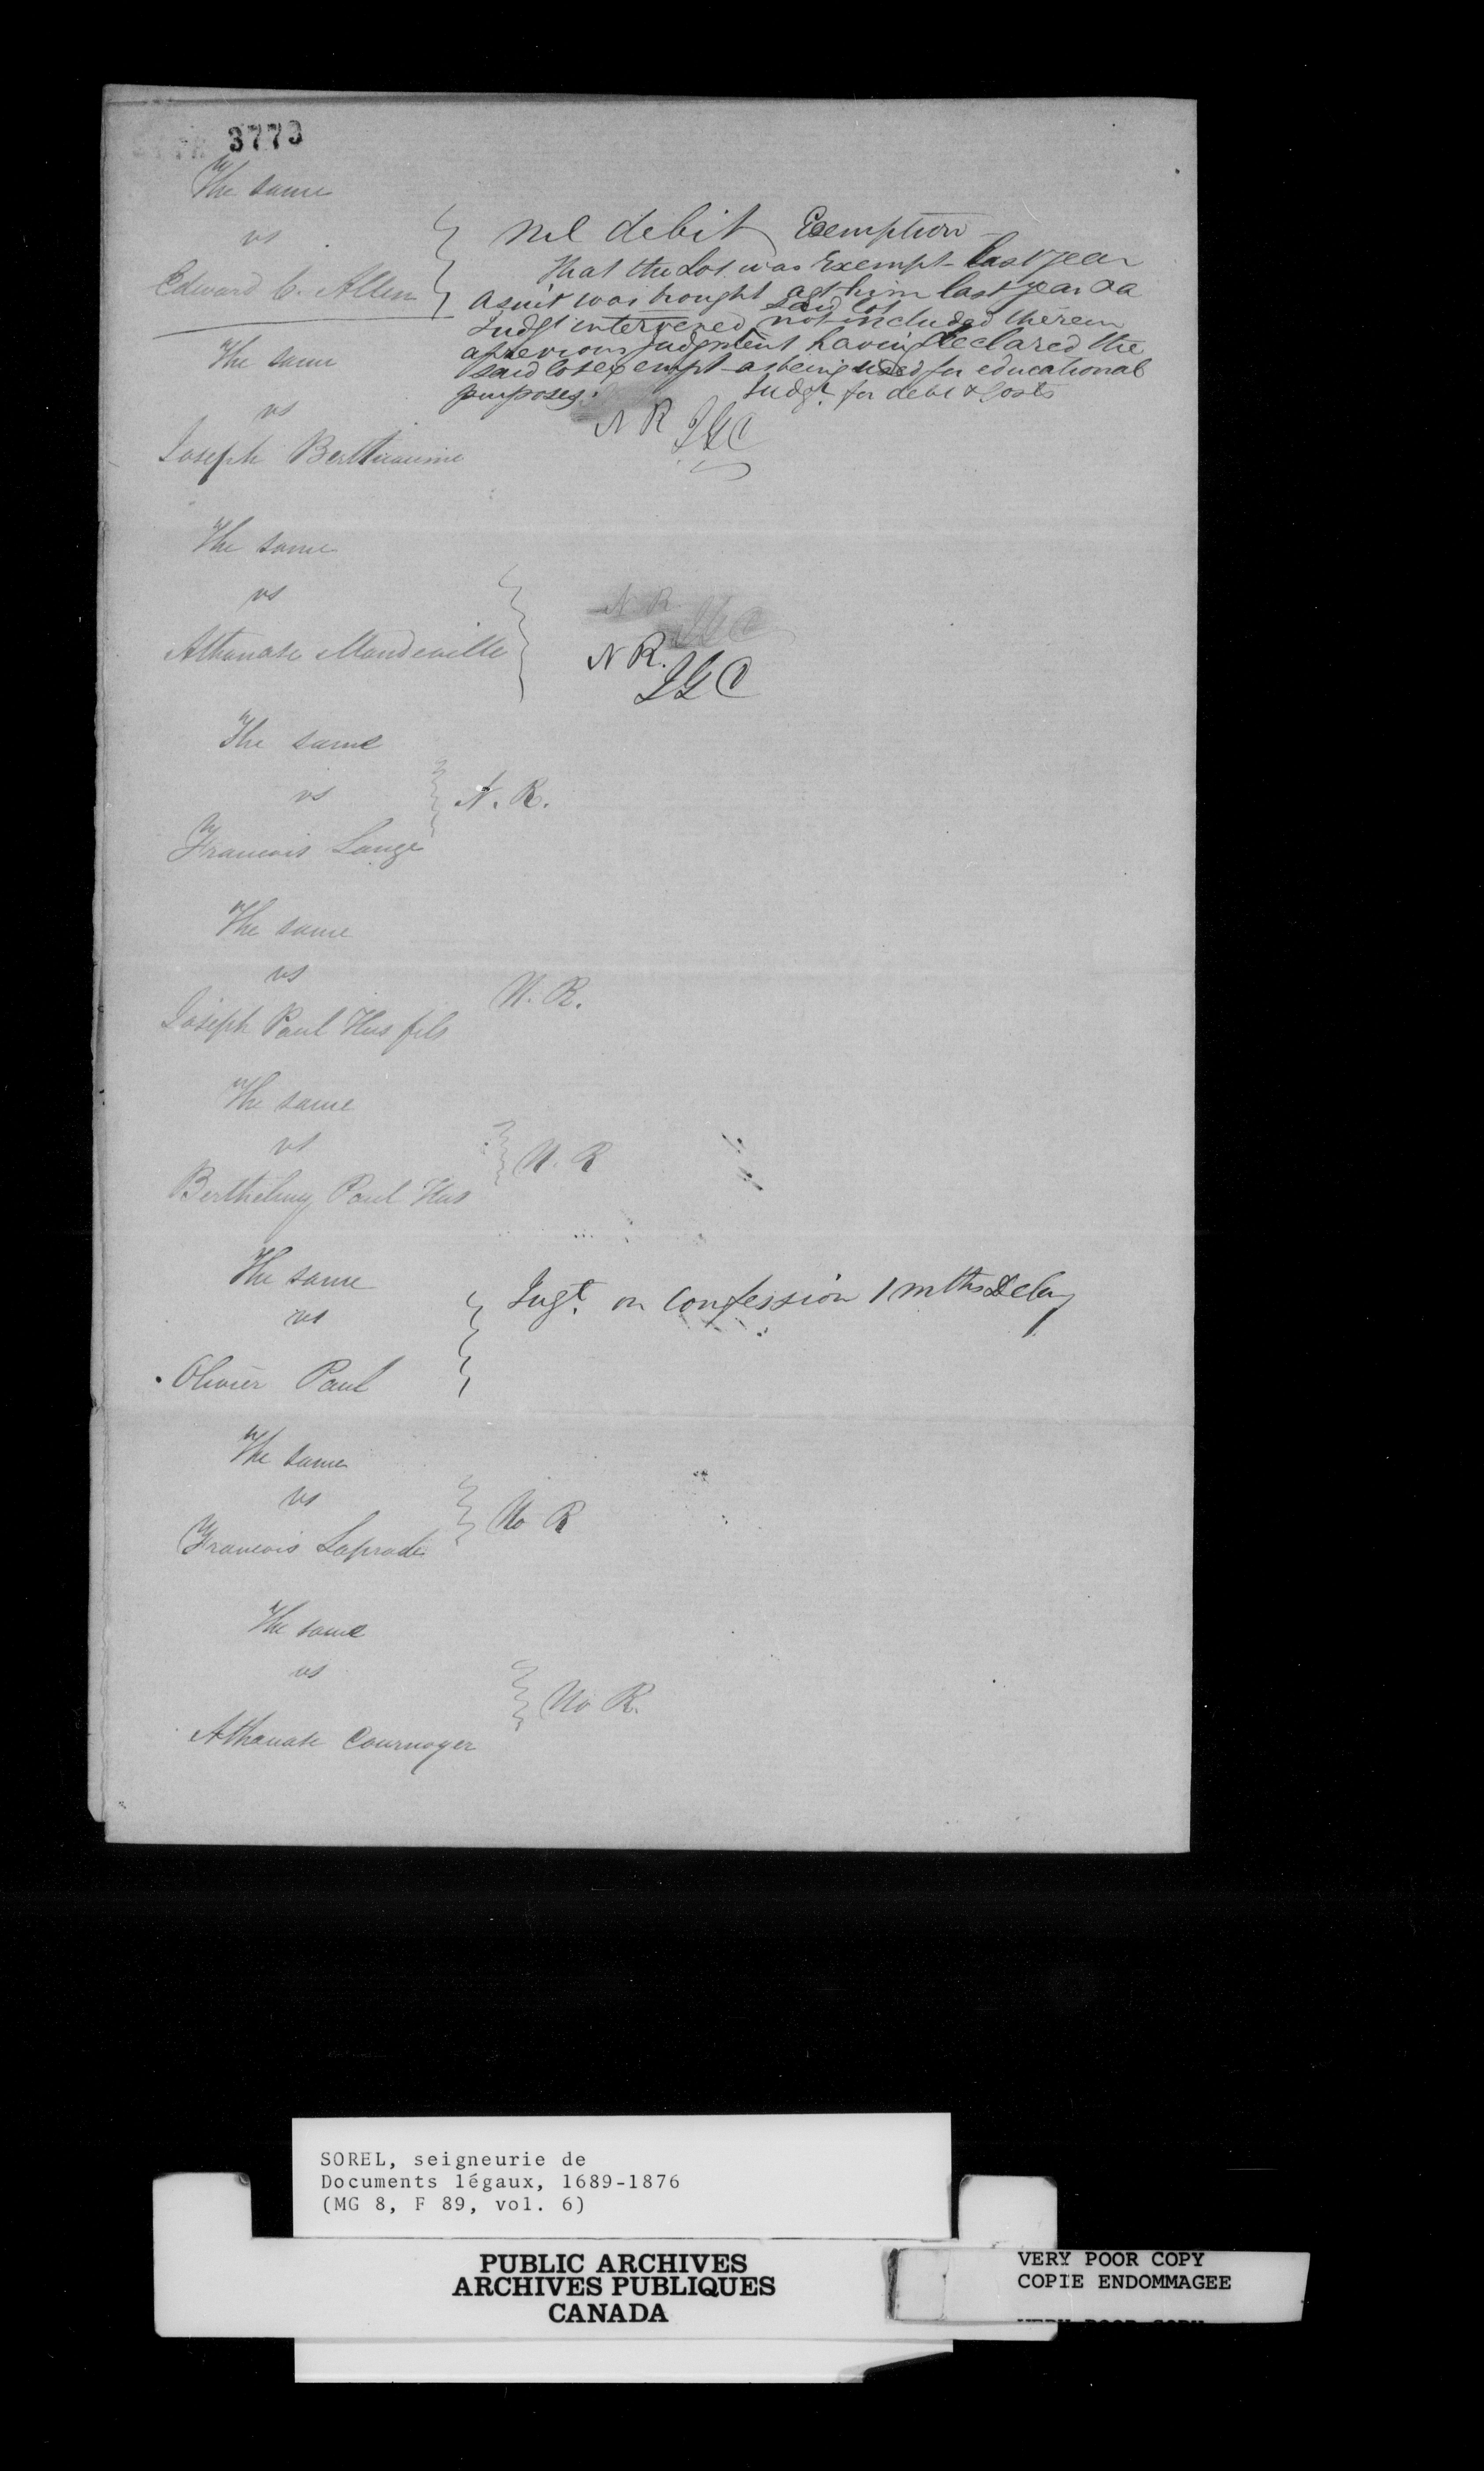 3773
The same
vs
Edward C. Allen
nil debit Exemption
that the Lot was Exempt last year
a suit was brought agt him last year & a
said lot
Judgt intervened not included therein
a previous judgment having declared the
said lot exempt as being used for educational
purposes. Judgt. for debt & Costs
The same
vs
Joseph Berthiaume
N R JGC
The same
vs
Athanase Mandeville
N R
JGC
N R.
JGC
The same
vs
Francois Lange
N. R.
The same
vs
Joseph Paul Hus fils
N. R.
The same
vs
Berthelmy Paul Hus
N. R
The same
vs
Olivier Paul
Jugt. on Confession 1 mths Delay
The same
vs
Francois Laprade
No R
The same
vs
Athanase Cournoyer
No R.
SOREL, seigneurie de
Documents légaux, 1689-1876
(MG 8, F 89, vol. 6)
PUBLIC ARCHIVES
ARCHIVES PUBLIQUES
CANADA
VERY POOR COPY
COPIE ENDOMMAGEE
VERY POOR COPY